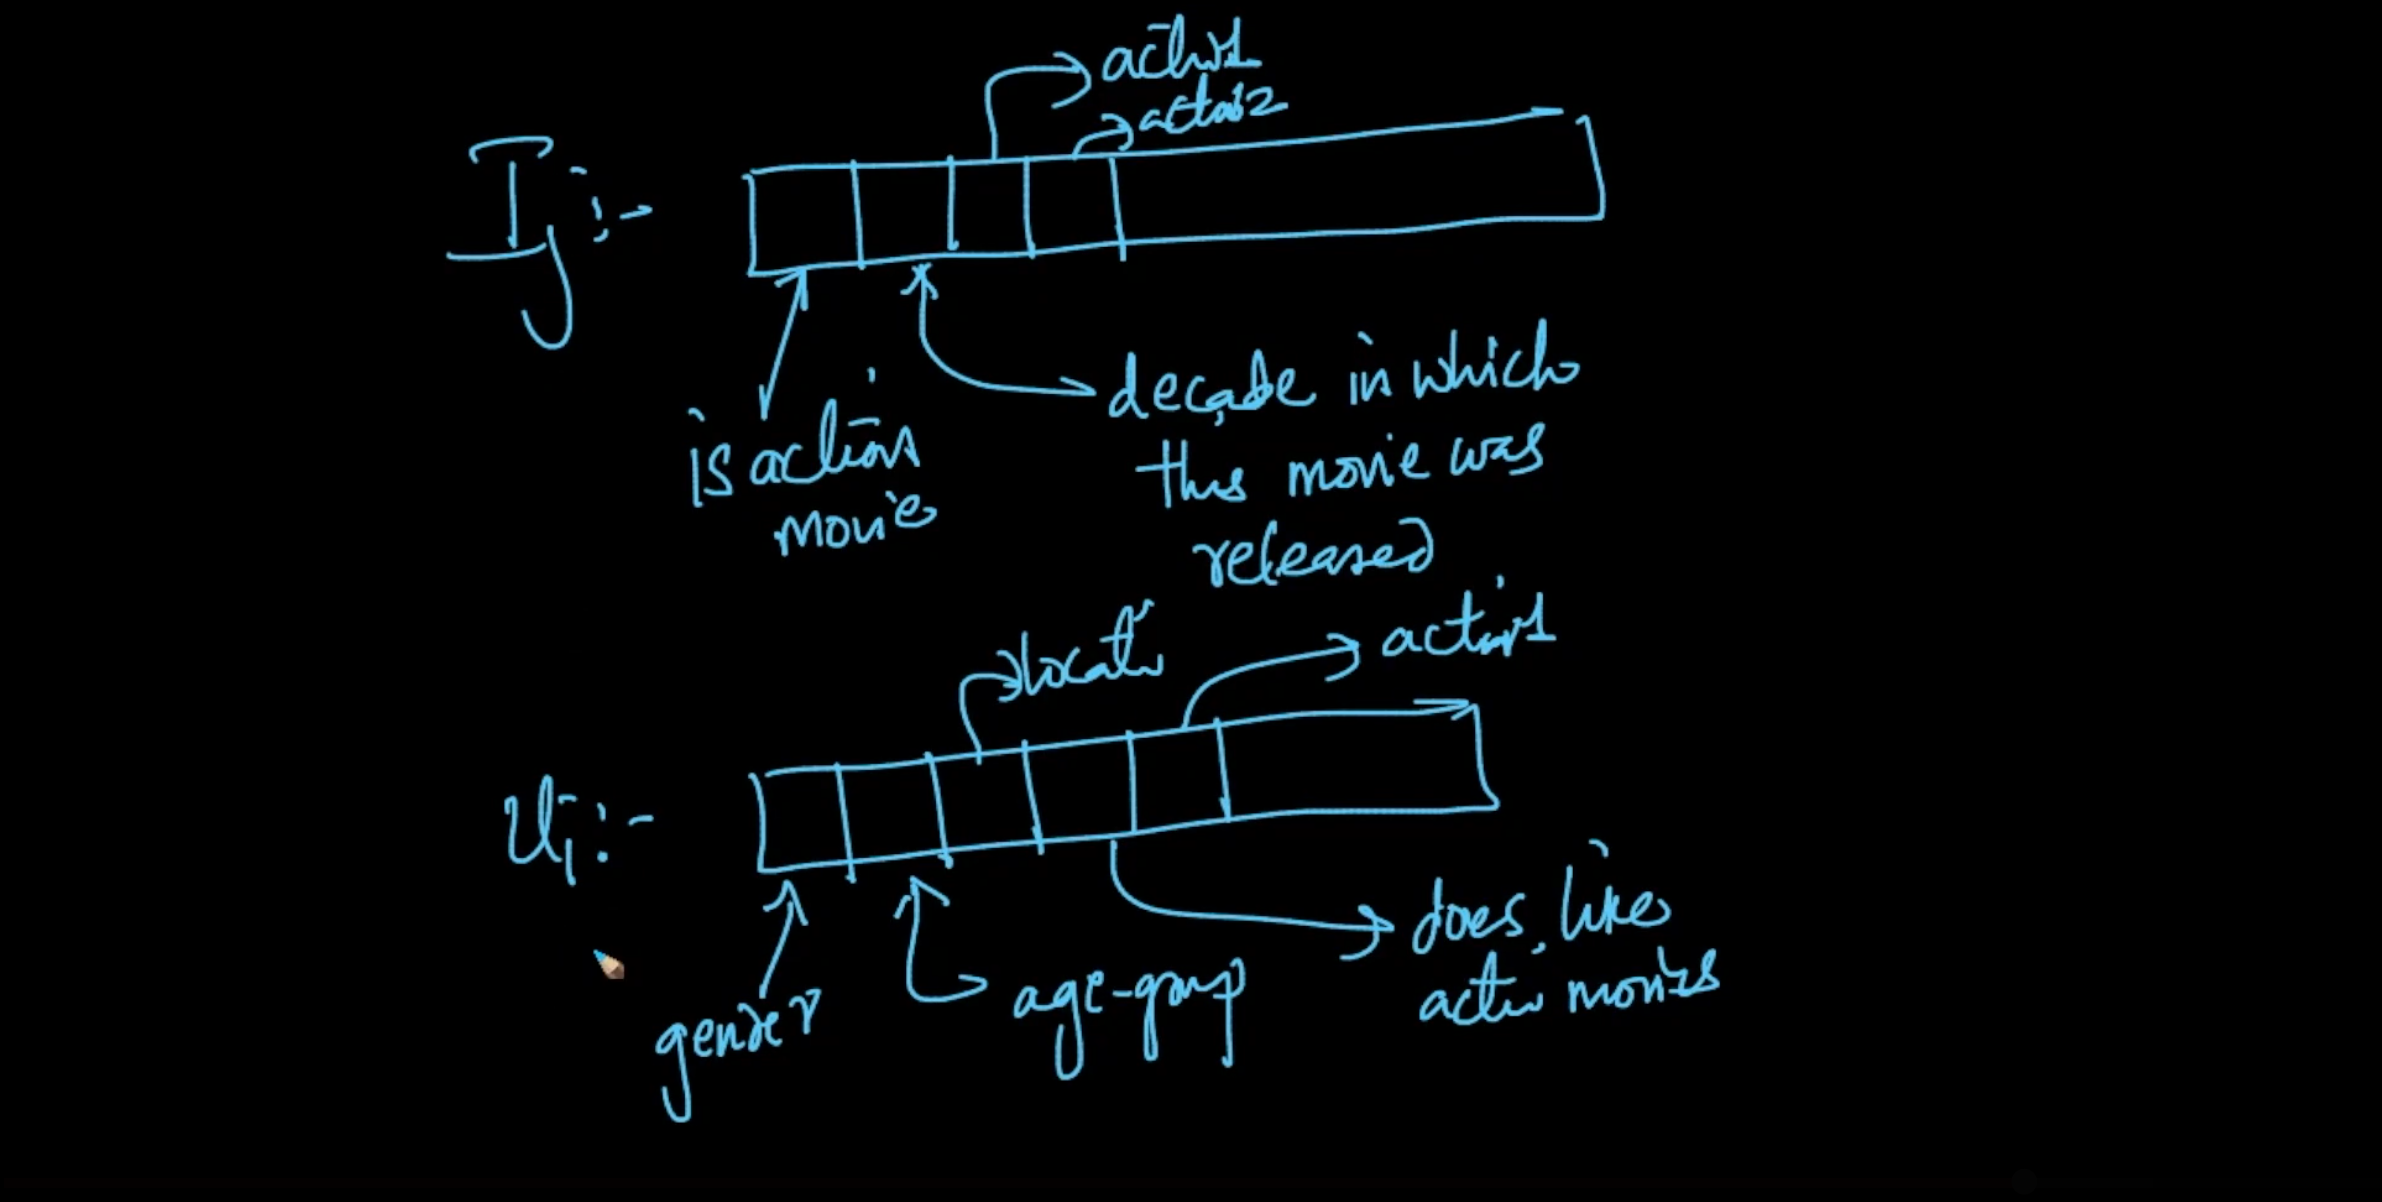 actor1
actor2
Ij :-
is action
movie
decade in which
this movie was
released
locatn
actor1
Ui :-
gender
age-group
does like
actn movies